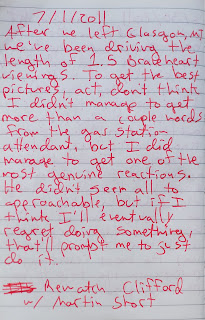 7/1/2011
After we left Glasgow, MT
we've been driving the
length of 1.5 Braveheart
viewings. To get the best
pictures, act, dont think
I didn't manage to get
more than a couple words
from the gas station
attendant, but I did
manage to get one of the
most genuine reactions.
He didn't seem all to
approachable, but if I
think I'll eventually
regret doing something,
that'll prompt me to just
do it.
Rewatch Clifford
w/ Martin Short